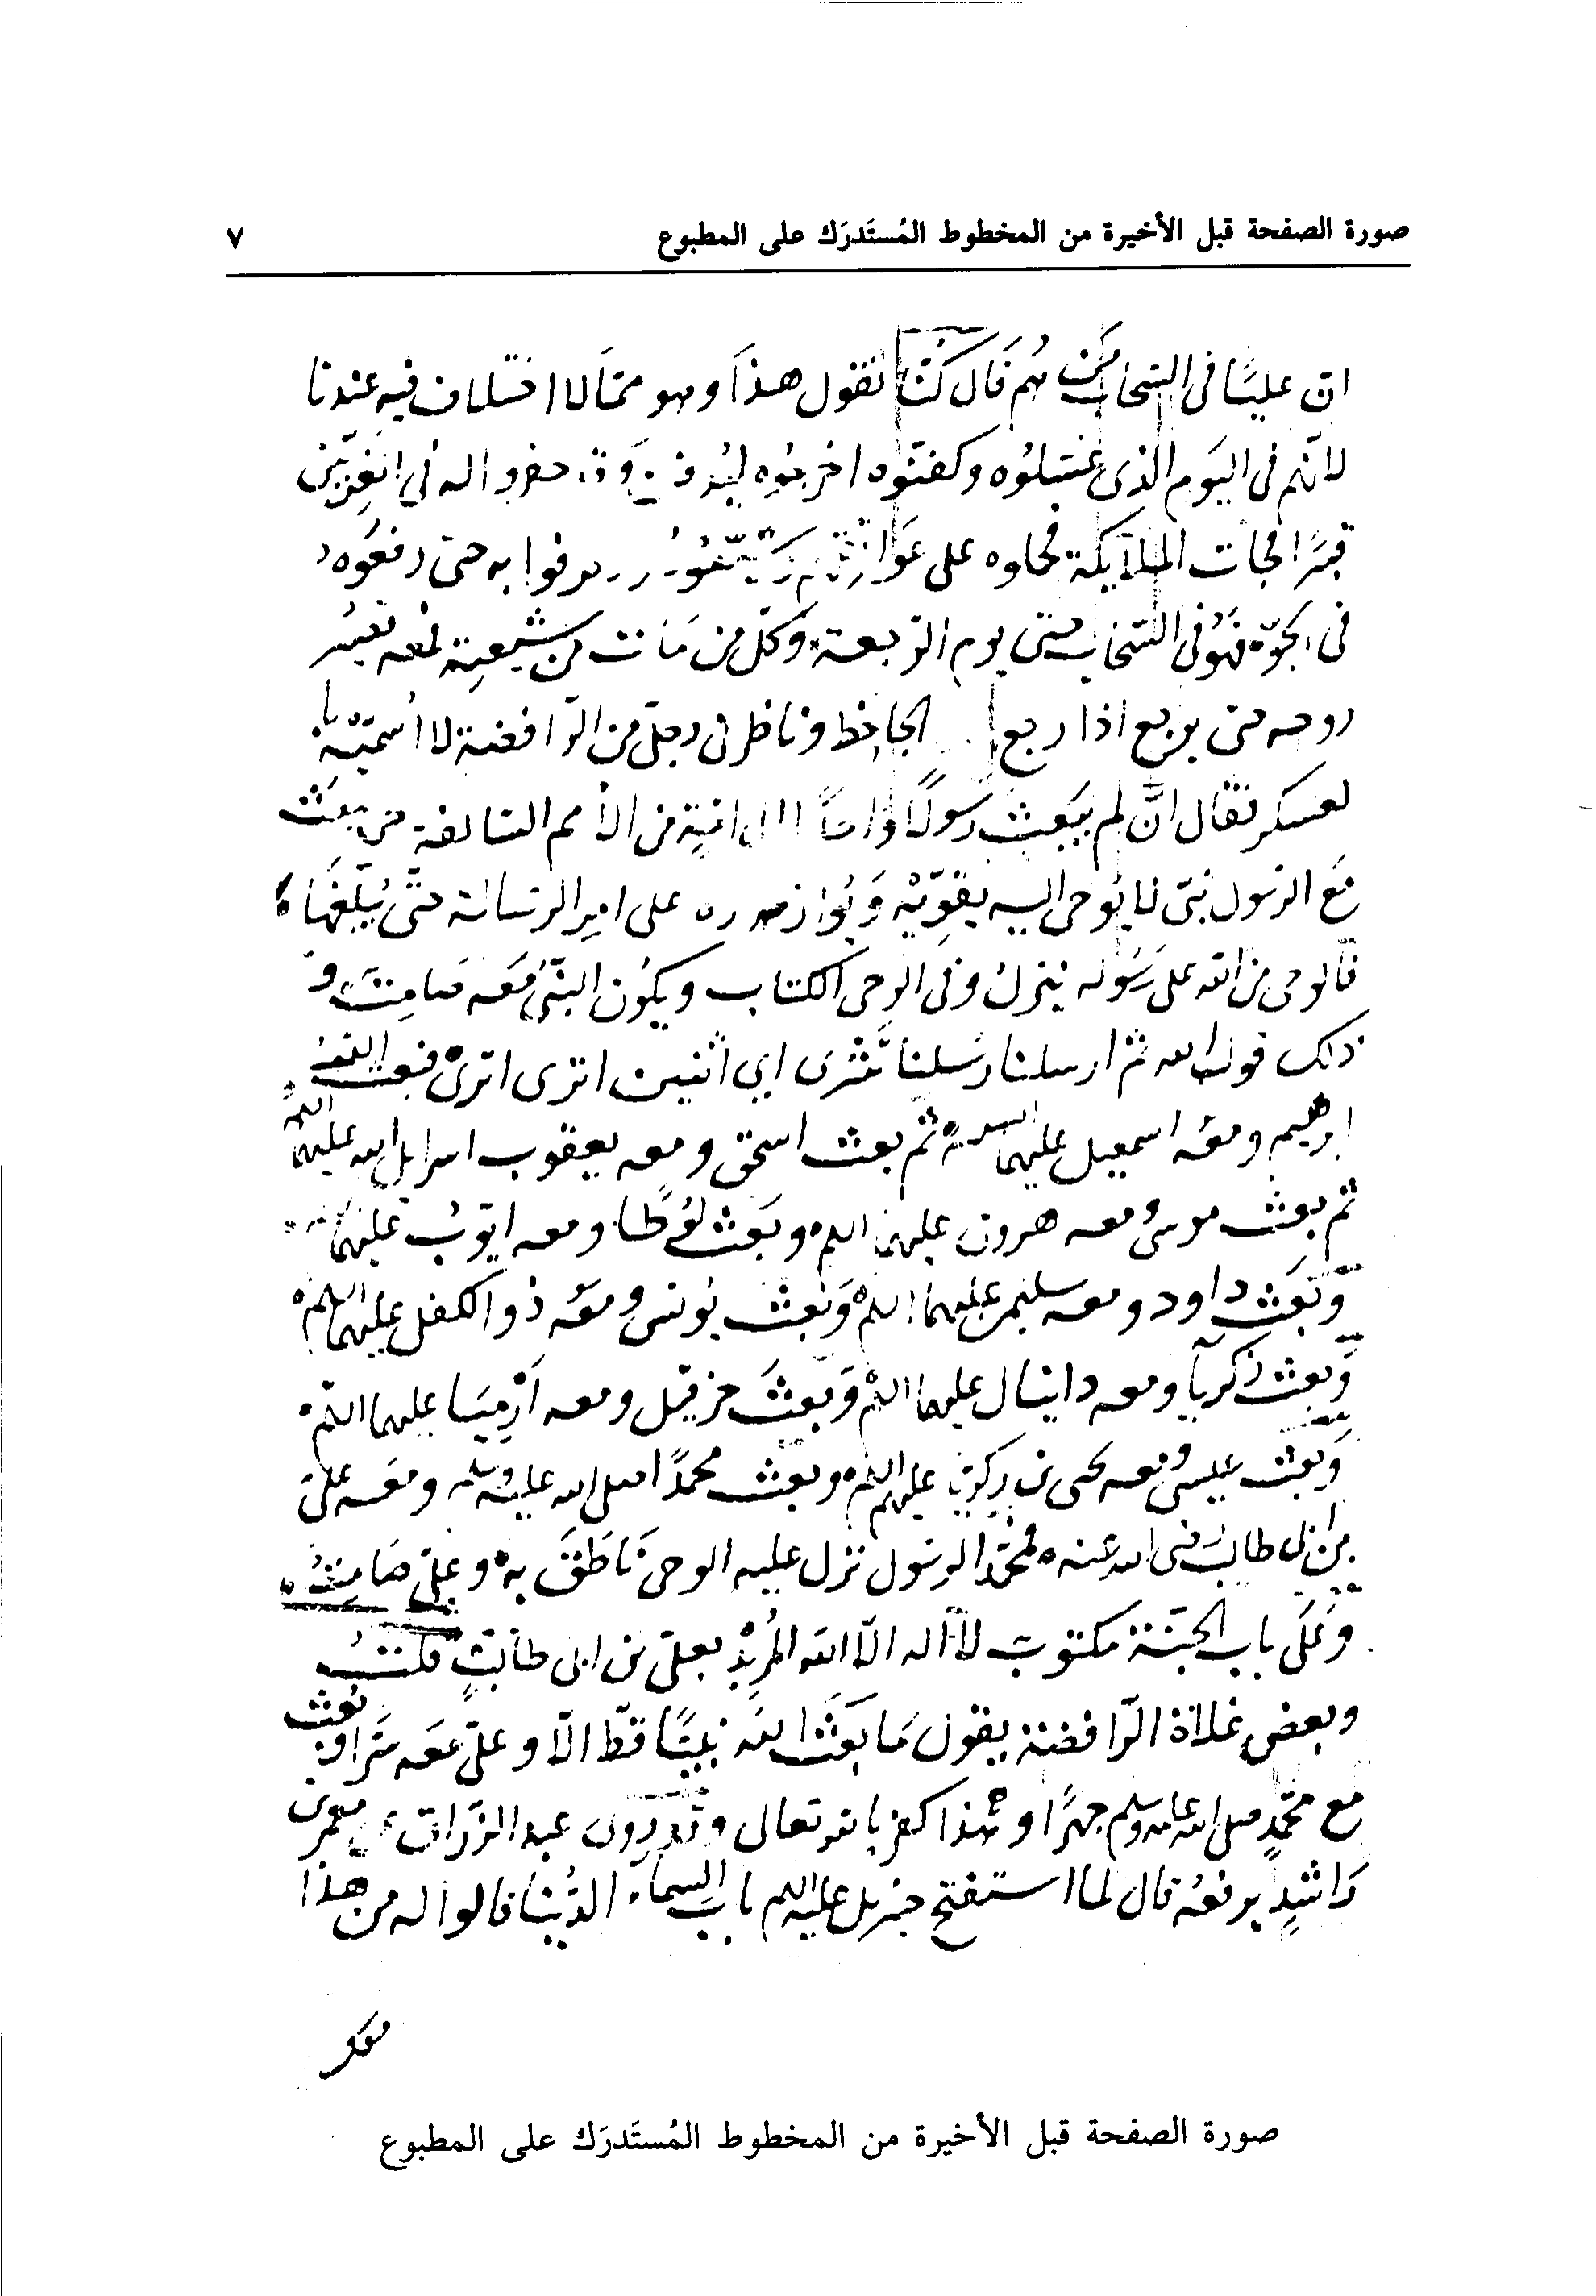 صورة الصفحة قبل الأخيرة من المخطوط المُستَدرَك على المطبوع ٧
ان عليًا فى السحاب هم قال كنا نقول هذا وهو مما لا اختلاف فيه عندنا
لانهم فى اليوم الذى غسلوه وكفنوه اخرجوه حفروا له فى الغريين
قبرًا فجات الملائكة على به حتى رفعوه
فى الجوّ فهو فى السحاب حتى يوم الرجعة وكل من مات من شيعته فمعه تصير
روحه حتى يرجع اذا رجع الجاحظ وناظرنى رجل من الرافضة لا اسميه
لعسكر فقال ان لم يبعث رسولًا من الأمم السالفة حتى يبعث
مع الرسول نبى لا يوحى اليه يقويه على امر الرسالة حتى يبلغها
فالوحى من الله على رسوله ينزل وفى الوحى الكتاب ويكون النبى معه صامت و
ذلك قول الله ثم ارسلنا رسلنا تترى اي اثنين اترى اترى فبعث الله
ابرهيم ومعه اسمعيل عليهما السلم ثم بعث اسحق ومعه يعقوب اسرايل الله عليهما السلم
ثم بعث موسى ومعه هرون عليهما السلم وبعث لوطا ومعه ايوب عليهما
وبعث داود ومعه سليمن عليهما السلم وبعث يونس ومعه ذو الكفل عليهما السلم
وبعث زكريا ومعه دانيال عليهما السلم وبعث حزقيل ومعه ارميا عليهما السلم
وبعث عيسى ومعه يحيى بن زكريا عليهم السلم وبعث محمدًا صلى الله عليه وسلم ومعه على
بن ابى طالب رضى الله عنه فمحمد الرسول نزل عليه الوحى ناطق به وعلى صامت
وعلى باب الجنة مكتوب لا اله الا الله المريد بعلى بن ابى طالب فكتب
وبعض غلاة الرافضة يقول ما بعث الله نبيًا قط الا وعلى معه سرا وبعث
مع محمد صلى الله عليه وسلم جهرًا وهذا كفر بالله تعالى عبد الرزاق عن معمر بن
راشد يرفعه قال لما استفتح جبريل عليه السلم باب السماء الدنيا قالوا له من هذا
معك
صورة الصفحة قبل الأخيرة من المخطوط المُستَدرَك على المطبوع